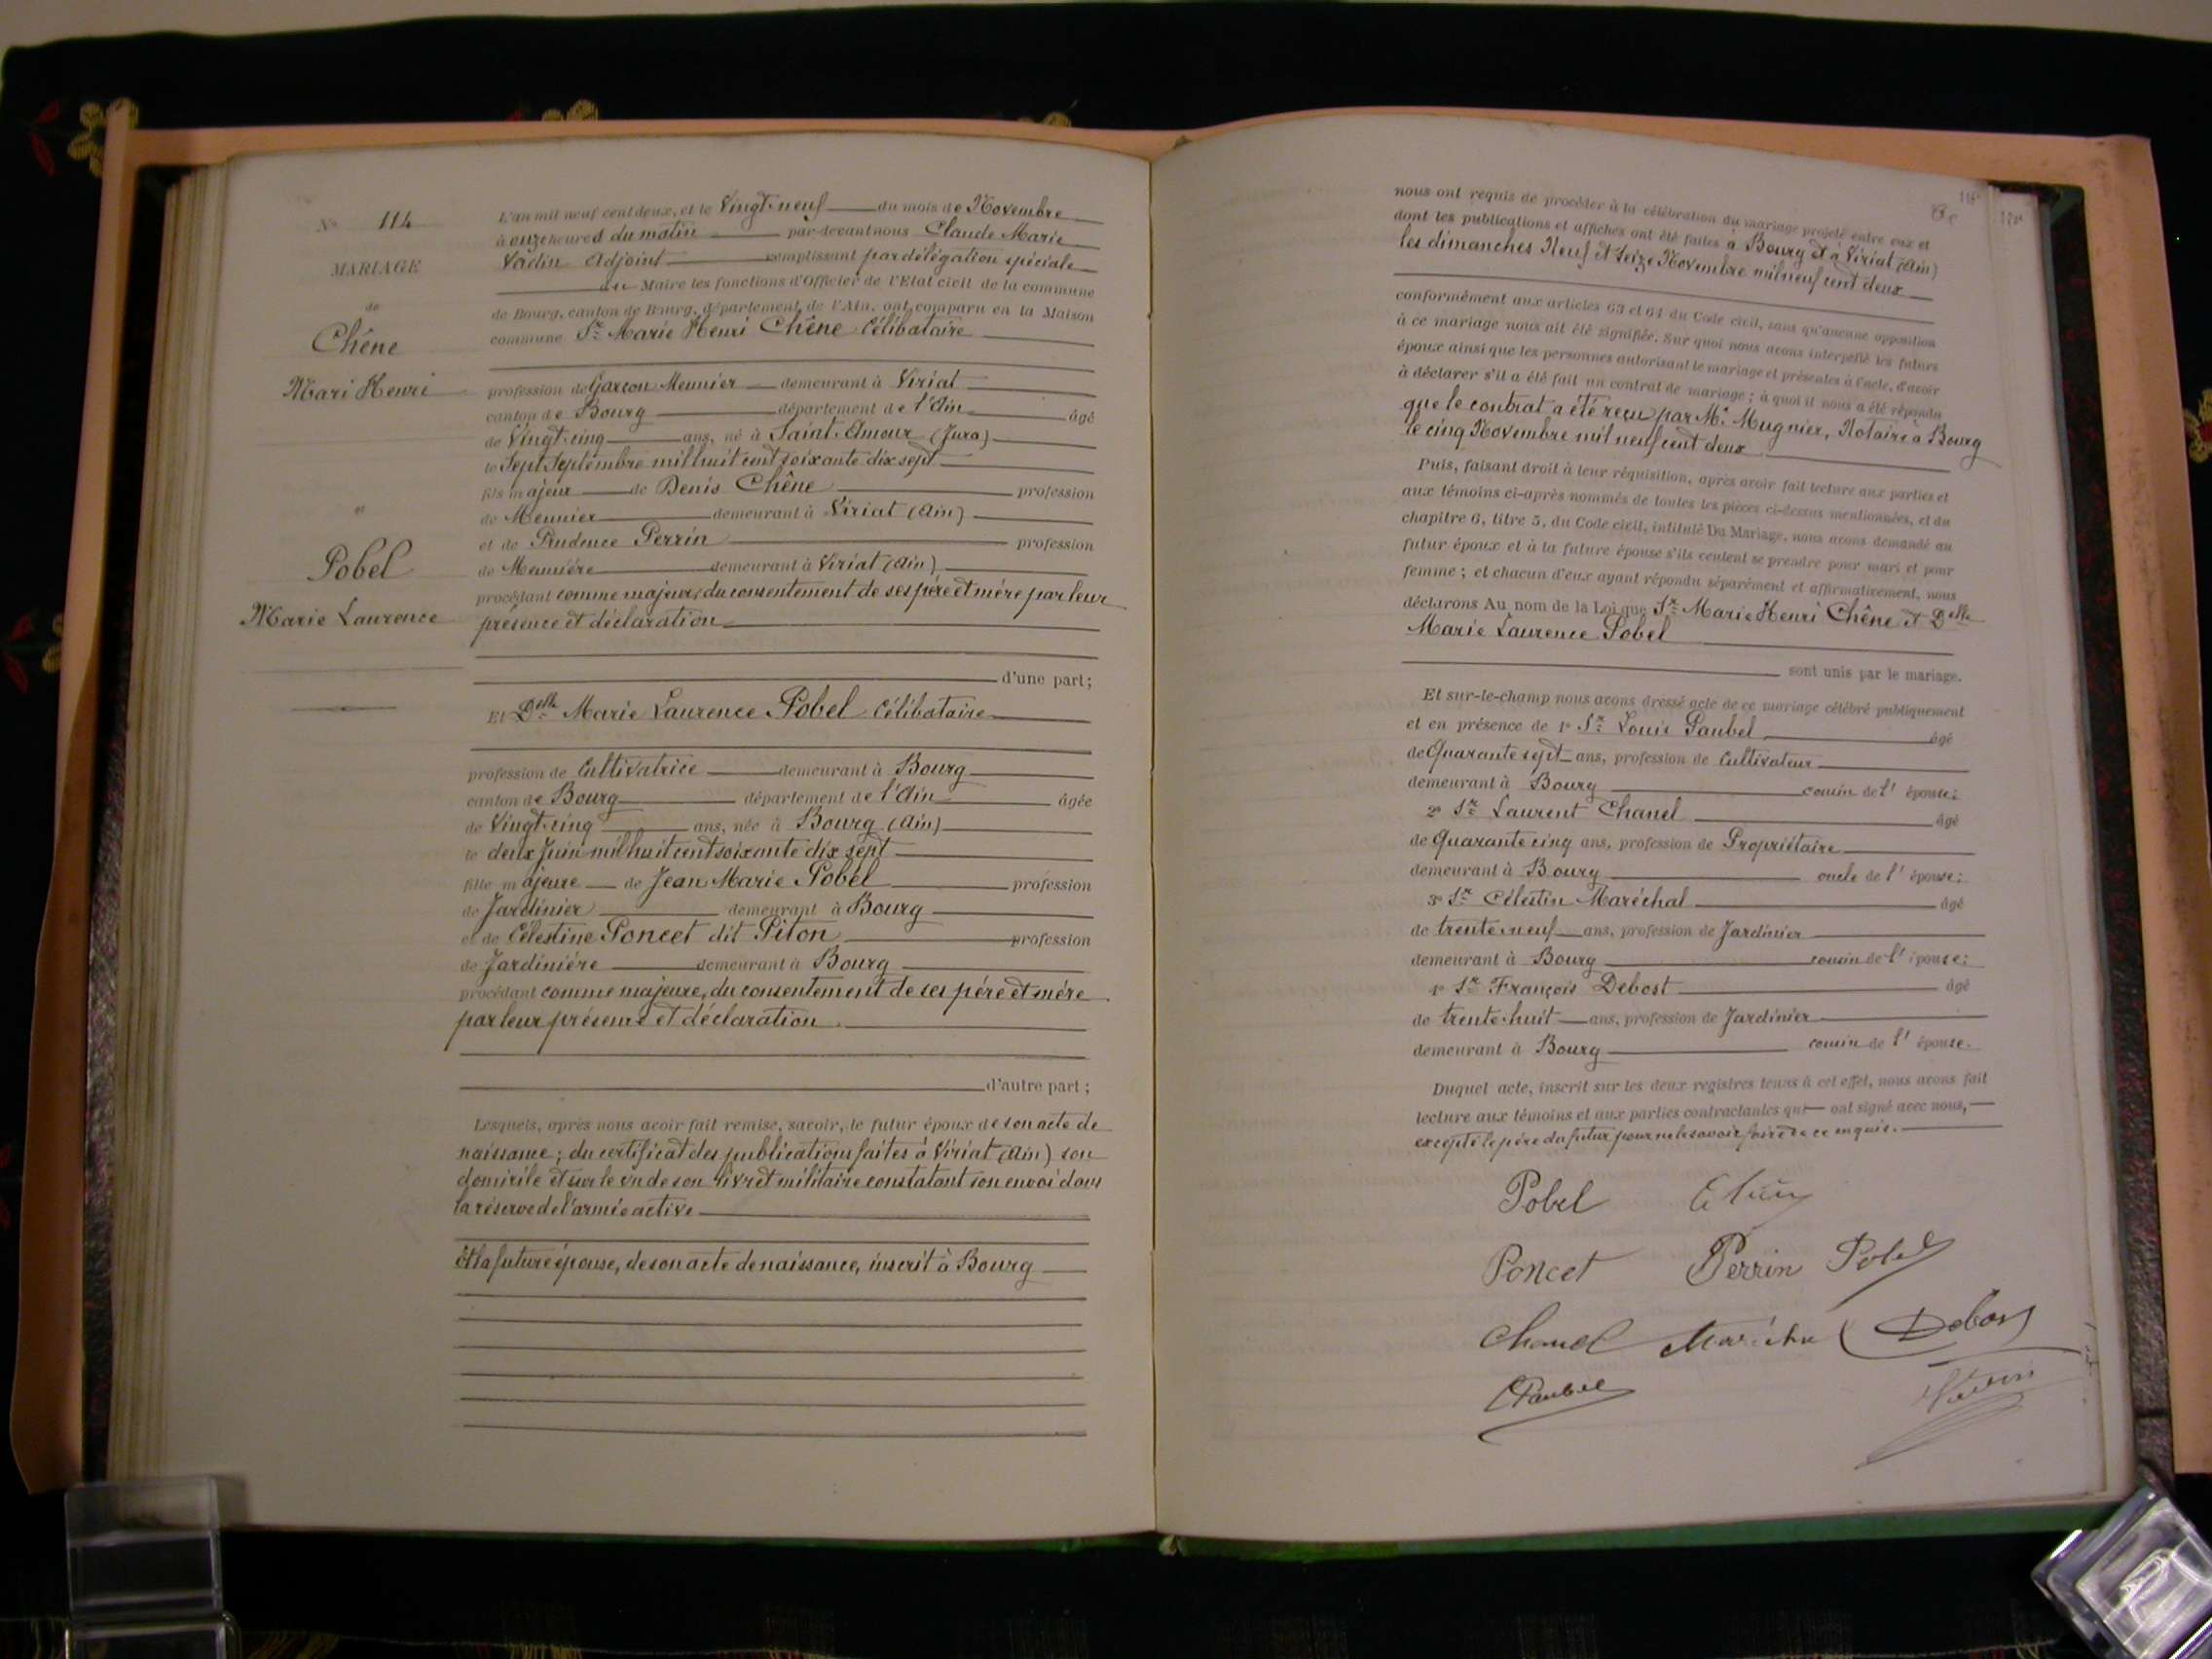 N° 114
MARIAGE
de
Chêne
Mari Henri
et
Pobel
Marie Laurence
L'an mil neuf cent deux, et le Vingt-neuf du mois de Novembre
à onze heures du matin par-devant nous Claude Marie
Verdin Adjoint remplissant par délégation spéciale
du Maire les fonctions d'Officier de l'Etat civil de la commune
de Bourg, canton de Bourg, département de l'Ain, ont comparu en la Maison
commune Sr Marie Henri Chêne Célibataire
profession de Garçon Meunier demeurant à Viriat
canton de Bourg département de l'Ain âgé
de Vingt-cinq ans, né à Saint-Amour (Jura)
le Sept Septembre mil huit cent soixante dix sept
fils majeur de Denis Chêne profession
de Meunier demeurant à Viriat (Ain)
et de Prudence Perrin profession
de Meunière demeurant à Viriat (Ain)
procédant comme majeur, du consentement de ses père et mère par leur
présence et déclaration
d'une part;
Et Delle Marie Laurence Pobel Célibataire
profession de Cultivatrice demeurant à Bourg
canton de Bourg département de l'Ain âgée
de Vingt-cinq ans, née à Bourg (Ain)
le deux Juin mil huit cent soixante dix sept
fille majeure de Jean Marie Pobel profession
de Jardinier demeurant à Bourg
et de Célestine Poncet dit Piton profession
de Jardinière demeurant à Bourg
procédant comme majeure, du consentement de ses père et mère
par leur présence et déclaration
d'autre part;
Lesquels, après nous avoir fait remise, savoir, le futur époux de son acte de
naissance; du certificat des publications faites à Viriat (Ain) son
domicile et sur le vu de son livret militaire constatant son envoi dans
la réserve de l'armée active
Et la future épouse, de son acte de naissance, inscrit à Bourg
nous ont requis de procéder à la célébration du mariage projeté entre eux et
dont les publications et affiches ont été faites à Bourg et à Viriat (Ain)
les dimanches Neuf et Seize Novembre mil neuf cent deux
conformément aux articles 63 et 64 du Code civil, sans qu'aucune opposition
à ce mariage nous ait été signifiée. Sur quoi nous avons interpellé les futurs
époux ainsi que les personnes autorisant le mariage et présentes à l'acte, d'avoir
à déclarer s'il a été fait un contrat de mariage; à quoi il nous a été répondu
que le contrat a été reçu par Me Mugnier, Notaire à Bourg
le cinq Novembre mil neuf cent deux
Puis, faisant droit à leur réquisition, après avoir fait lecture aux parties et
aux témoins ci-après nommés de toutes les pièces ci-dessus mentionnées, et du
chapitre 6, titre 5, du Code civil, intitulé Du Mariage, nous avons demandé au
futur époux et à la future épouse s'ils veulent se prendre pour mari et pour
femme; et chacun d'eux ayant répondu séparément et affirmativement, nous
déclarons Au nom de la Loi que Sr Marie Henri Chêne et Delle
Marie Laurence Pobel
sont unis par le mariage.
Et sur-le-champ nous avons dressé acte de ce mariage célébré publiquement
et en présence de 1° Sr Louis Paubel âgé
de Quarante sept ans, profession de Cultivateur
demeurant à Bourg cousin de l' épouse;
2° Sr Laurent Chanel âgé
de Quarante cinq ans, profession de Propriétaire
demeurant à Bourg oncle de l' épouse;
3° Sr Célestin Maréchal âgé
de trente-neuf ans, profession de Jardinier
demeurant à Bourg cousin de l' épouse;
4° Sr François Debost âgé
de trente-huit ans, profession de Jardinier
demeurant à Bourg cousin de l' épouse.
Duquel acte, inscrit sur les deux registres tenus à cet effet, nous avons fait
lecture aux témoins et aux parties contractantes qui ont signé avec nous,
excepté le père du futur pour ne le savoir faire de ce enquis.
Pobel
Poncet Perrin Pobel
Chanel Maréchal Debost
Paubel Verdin